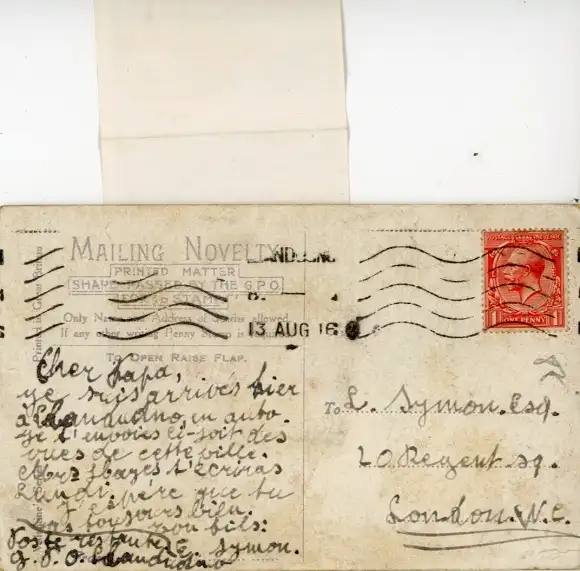 MAILING NOVELTY
PRINTED MATTER
SHAPE PASSED BY THE G.P.O.
STAMP
Only Name and Address of Sender allowed
If any other writing Penny Stamp is
TO OPEN RAISE FLAP.
Printed in Great Britain
13 AUG 16
ONE PENNY
Cher papa,
je suis arrivés hier
à Llandudno, en auto.
Je t'envoies ci-soit des
vues de cette ville.
t'écriras
Lundi, j'espère que tu
vas toujours bien.
ton fils:
Poste restante E. Symon.
G.P.O. Llandudno
To L. Symon. Esq.
20 Regent sq.
London. W.C.